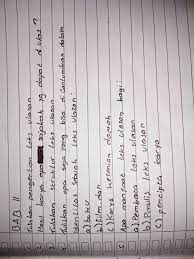 BAB II
1) Tuliskan pengertian teks ulasan
2) Hal / karya apa sajakah yg dapat di ulas ?
3) Tuliskan struktur teks ulasan
4) Tuliskan apa saja yang bisa di cantumkan dalam
identitas sebuah teks ulasan :
a) buku
b) film, dan
c) karya kesenian daerah
5) Apa manfaat teks ulasan bagi :
a) Pembaca teks ulasan
b) Penulis teks ulasan
c) pencipta karya